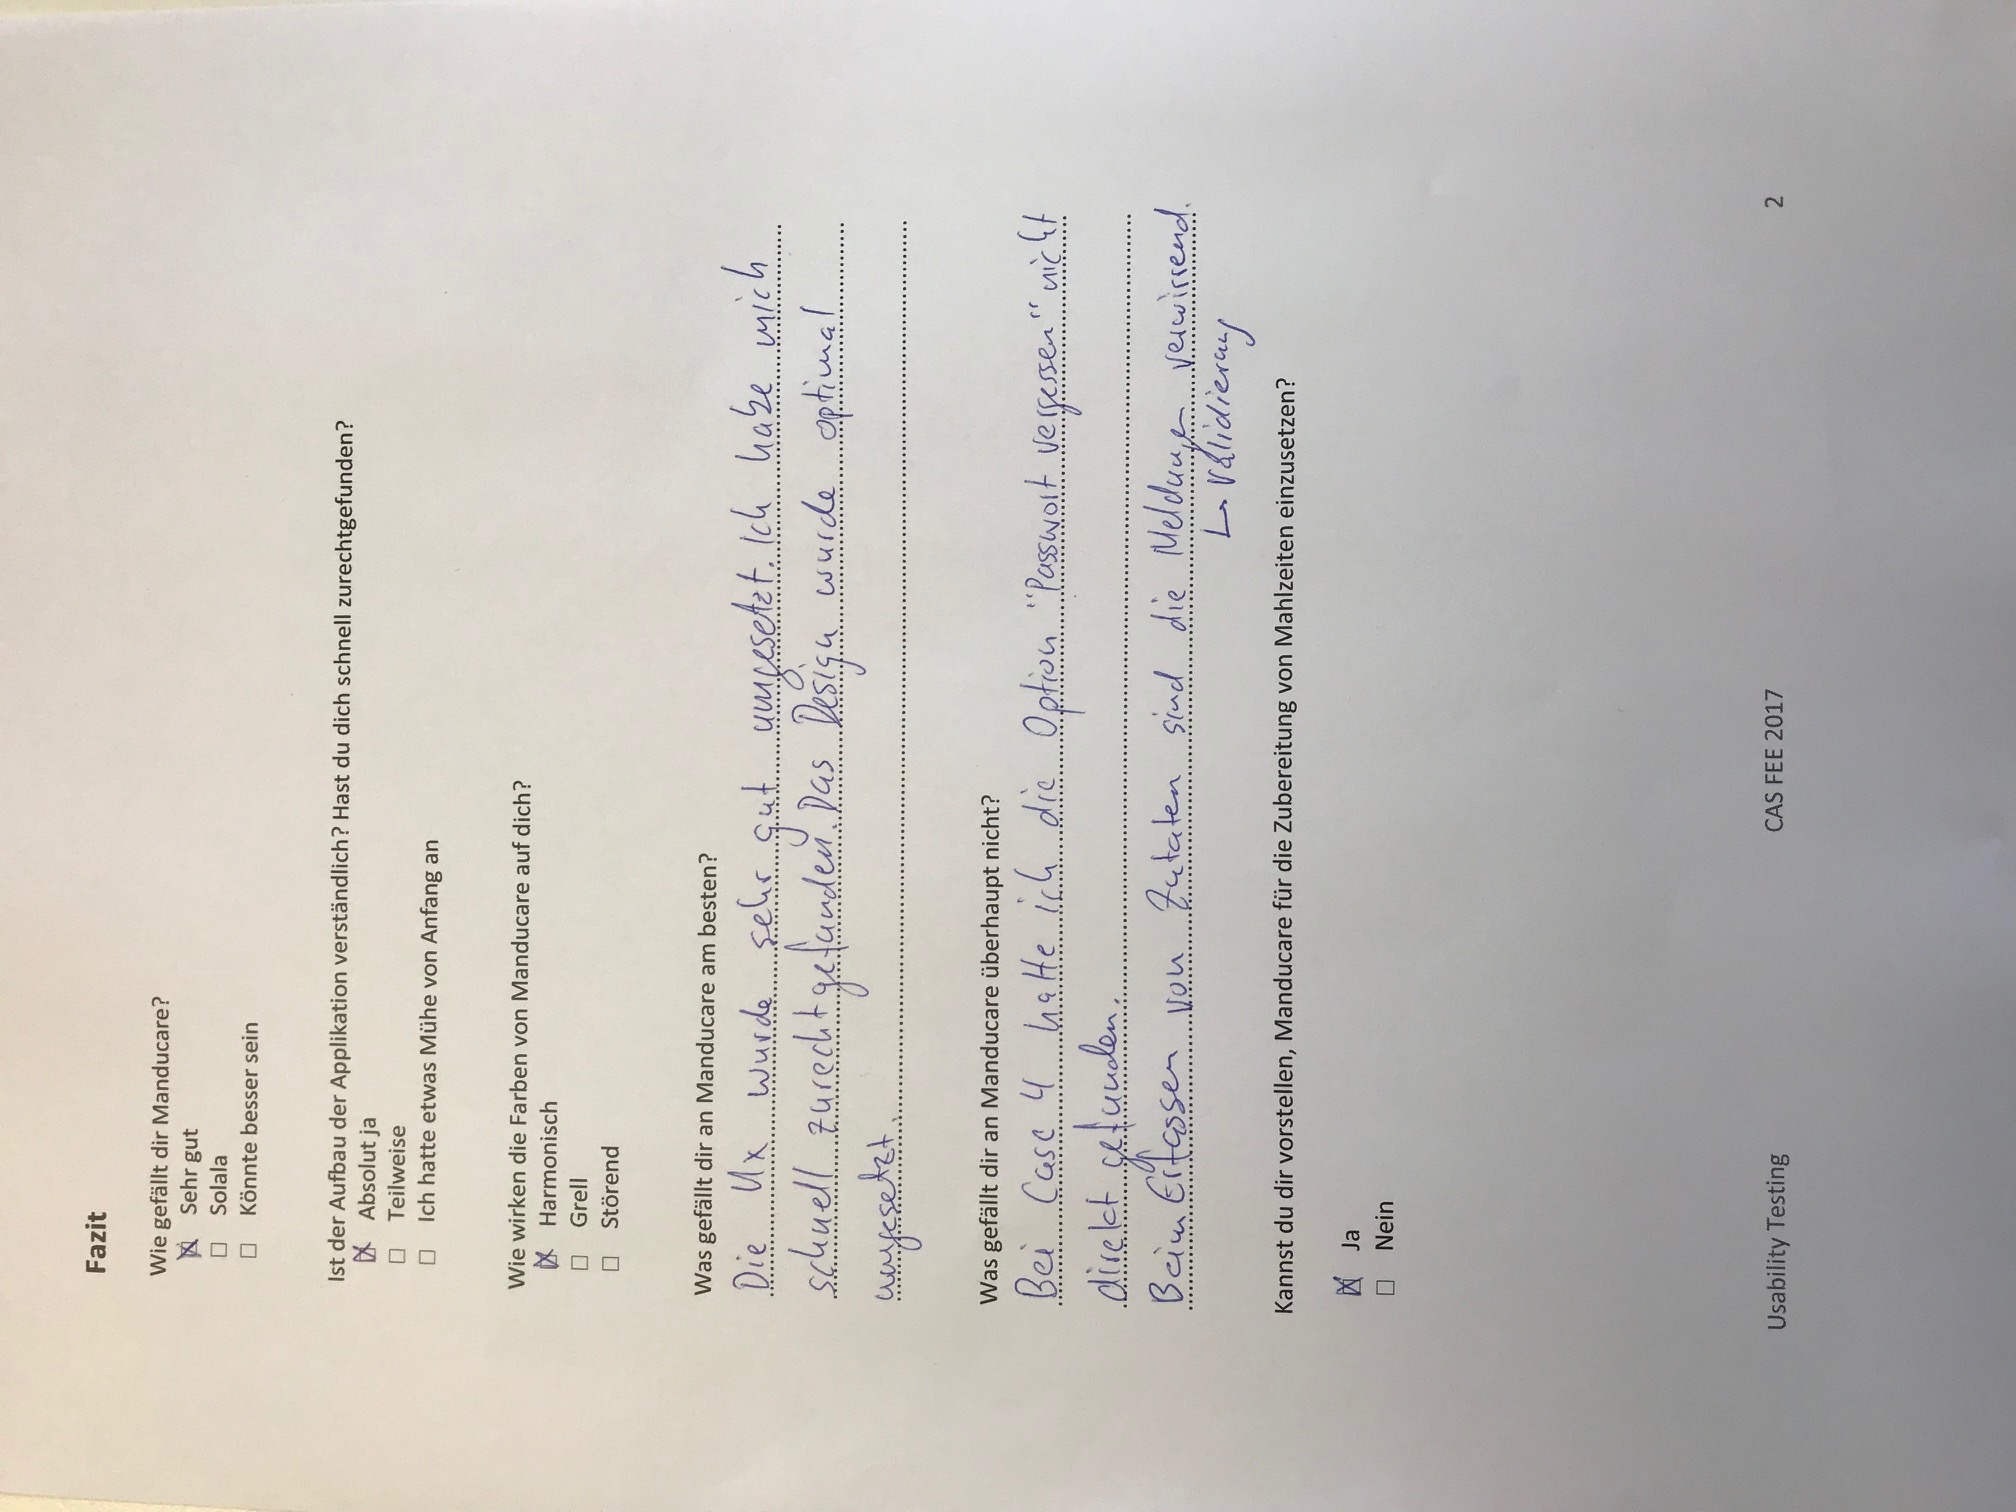 Fazit
Wie gefällt dir Manducare?
☒ Sehr gut
☐ Solala
☐ Könnte besser sein
Ist der Aufbau der Applikation verständlich? Hast du dich schnell zurechtgefunden?
☒ Absolut ja
☐ Teilweise
☐ Ich hatte etwas Mühe von Anfang an
Wie wirken die Farben von Manducare auf dich?
☒ Harmonisch
☐ Grell
☐ Störend
Was gefällt dir an Manducare am besten?
Die Ux wurde sehr gut umgesetzt. Ich habe mich
schnell zurechtgefunden. Das Design wurde optimal
umgesetzt.
Was gefällt dir an Manducare überhaupt nicht?
Bei Case 4 hatte ich die Option "Passwort vergessen" nicht
direkt gefunden.
Beim Erfassen von Zutaten sind die Meldungen verwirrend.
↳ Validierung
Kannst du dir vorstellen, Manducare für die Zubereitung von Mahlzeiten einzusetzen?
☒ Ja
☐ Nein
Usability Testing CAS FEE 2017 2